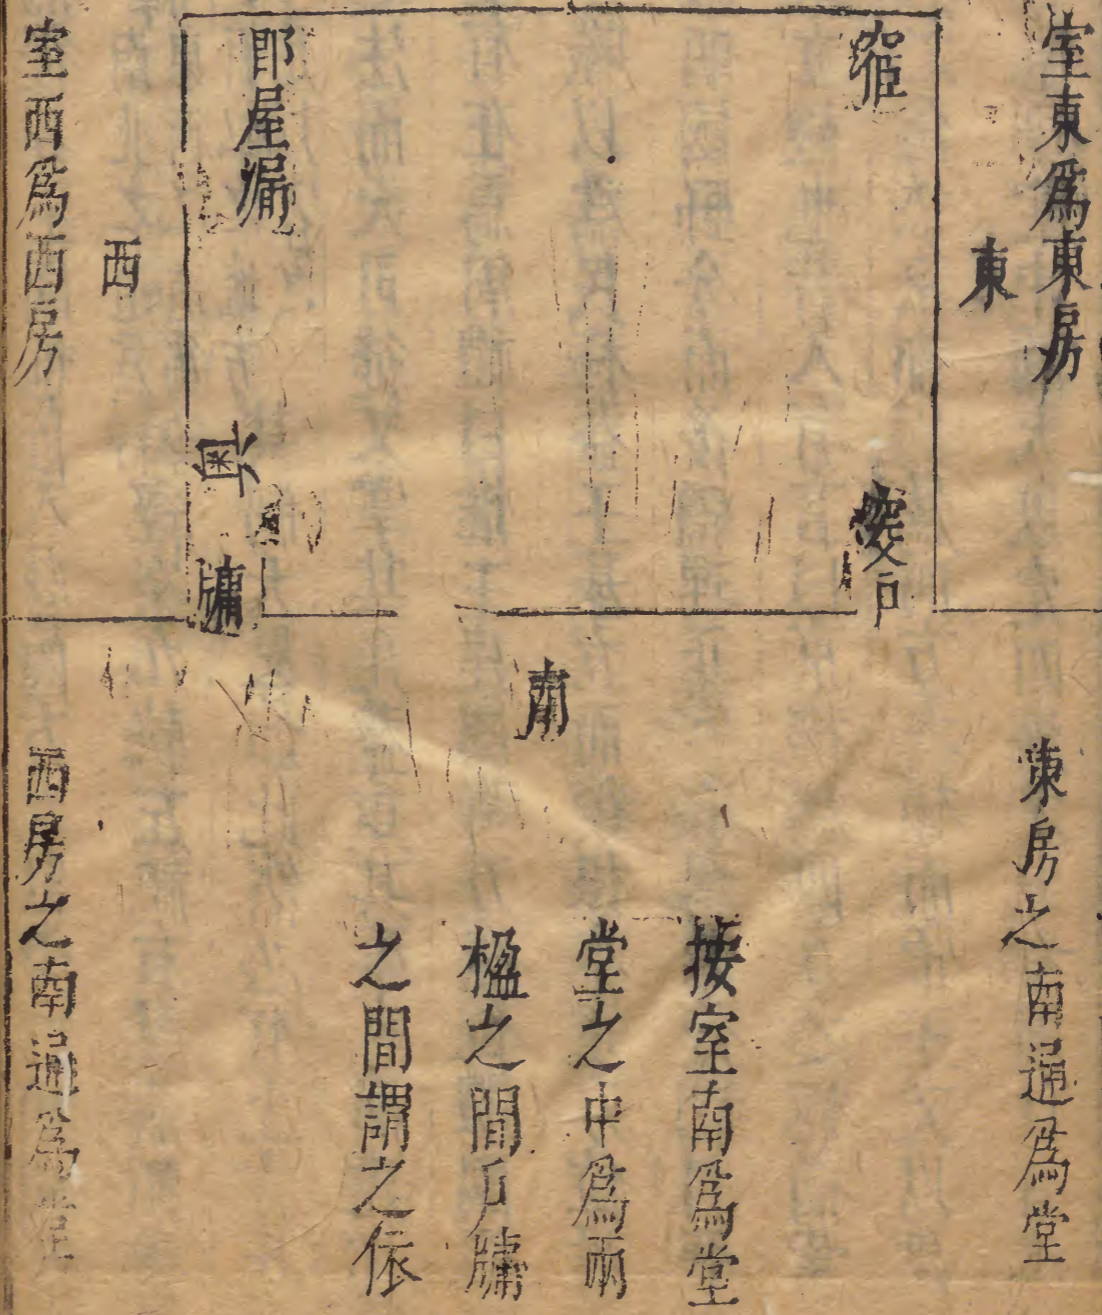 室東為東房
東
宧
窔戶
即屋漏
奧
牖
西
室西為西房
南
東房之南通為堂
按室南為堂
堂之中為兩
楹之間戶牖
之間謂之依
西房之南通為堂